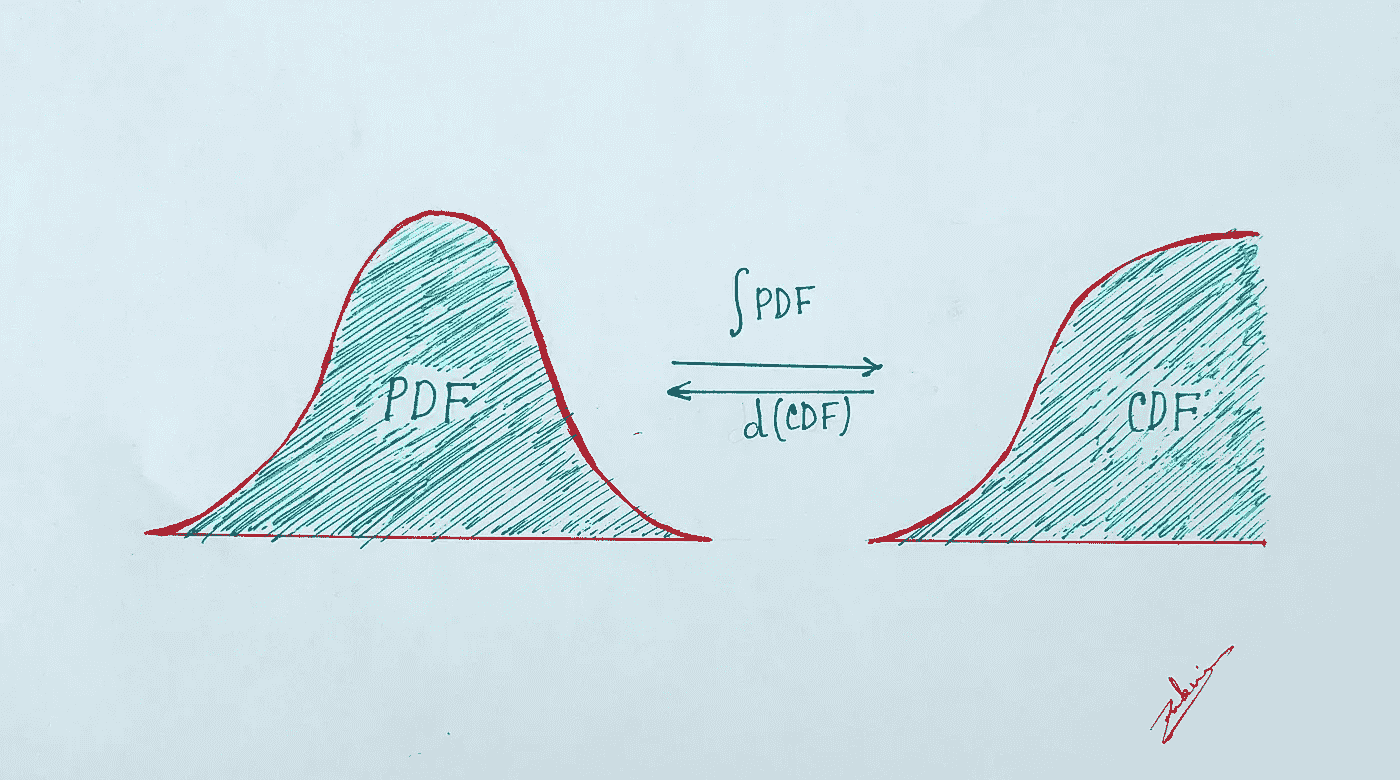 PDF
∫PDF
d(CDF)
CDF